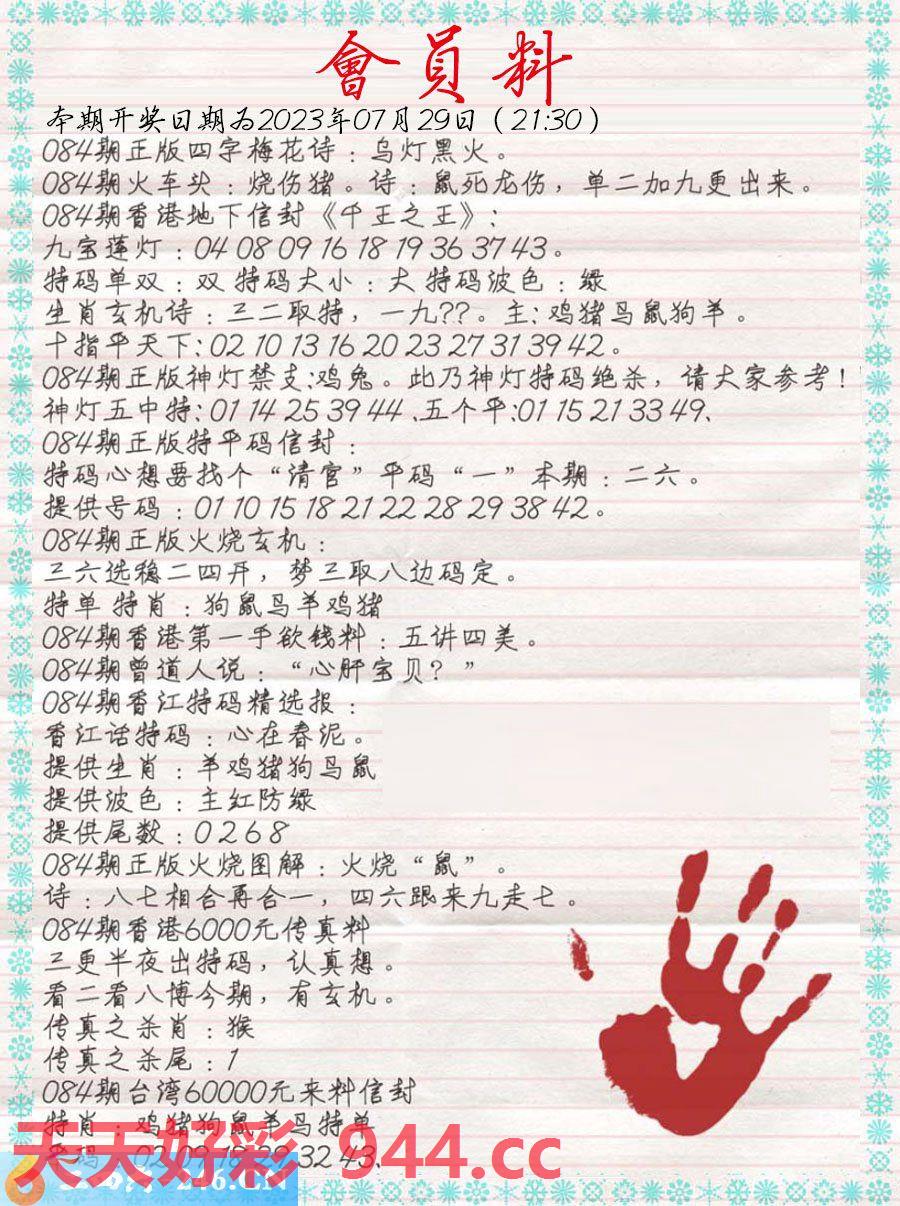 會員料
本期开奖日期为2023年07月29日（21:30）
084期正版四字梅花诗：乌灯黑火。
084期火车头：烧伤猪。诗：鼠死龙伤，单二加九更出来。
084期香港地下信封《千王之王》：
九宝莲灯：04 08 09 16 18 19 36 37 43。
特码单双：双 特码大小：大 特码波色：绿
生肖玄机诗：三二取特，一九??。主：鸡猪马鼠狗羊。
十指平天下：02 10 13 16 20 23 27 31 39 42。
084期正版神灯禁支:鸡兔。此乃神灯特码绝杀，请大家参考！
神灯五中特：01 14 25 39 44 .五个平:01 15 21 33 49.
084期正版特平码信封：
特码心想要找个“清官”平码“一”本期：二六。
提供号码：01 10 15 18 21 22 28 29 38 42。
084期正版火烧玄机：
三六选稳二四开，梦三取八边码定。
特单 特肖：狗鼠马羊鸡猪
084期香港第一手欲钱料：五讲四美。
084期曾道人说：“心肝宝贝？”
084期香江特码精选报：
香江话特码：心在春泥。
提供生肖：羊鸡猪狗马鼠
提供波色：主红防绿
提供尾数：0 2 6 8
084期正版火烧图解：火烧“鼠”。
诗：八七相合再合一，四六跟来九走七。
084期香港6000元传真料
三更半夜出特码，认真想。
看二看八博今期，有玄机。
传真之杀肖：猴
传真之杀尾：1
084期台湾60000元来料信封
特肖：鸡猪狗鼠羊马特单
天天好彩 944.cc
02 09 18 29 32 43.